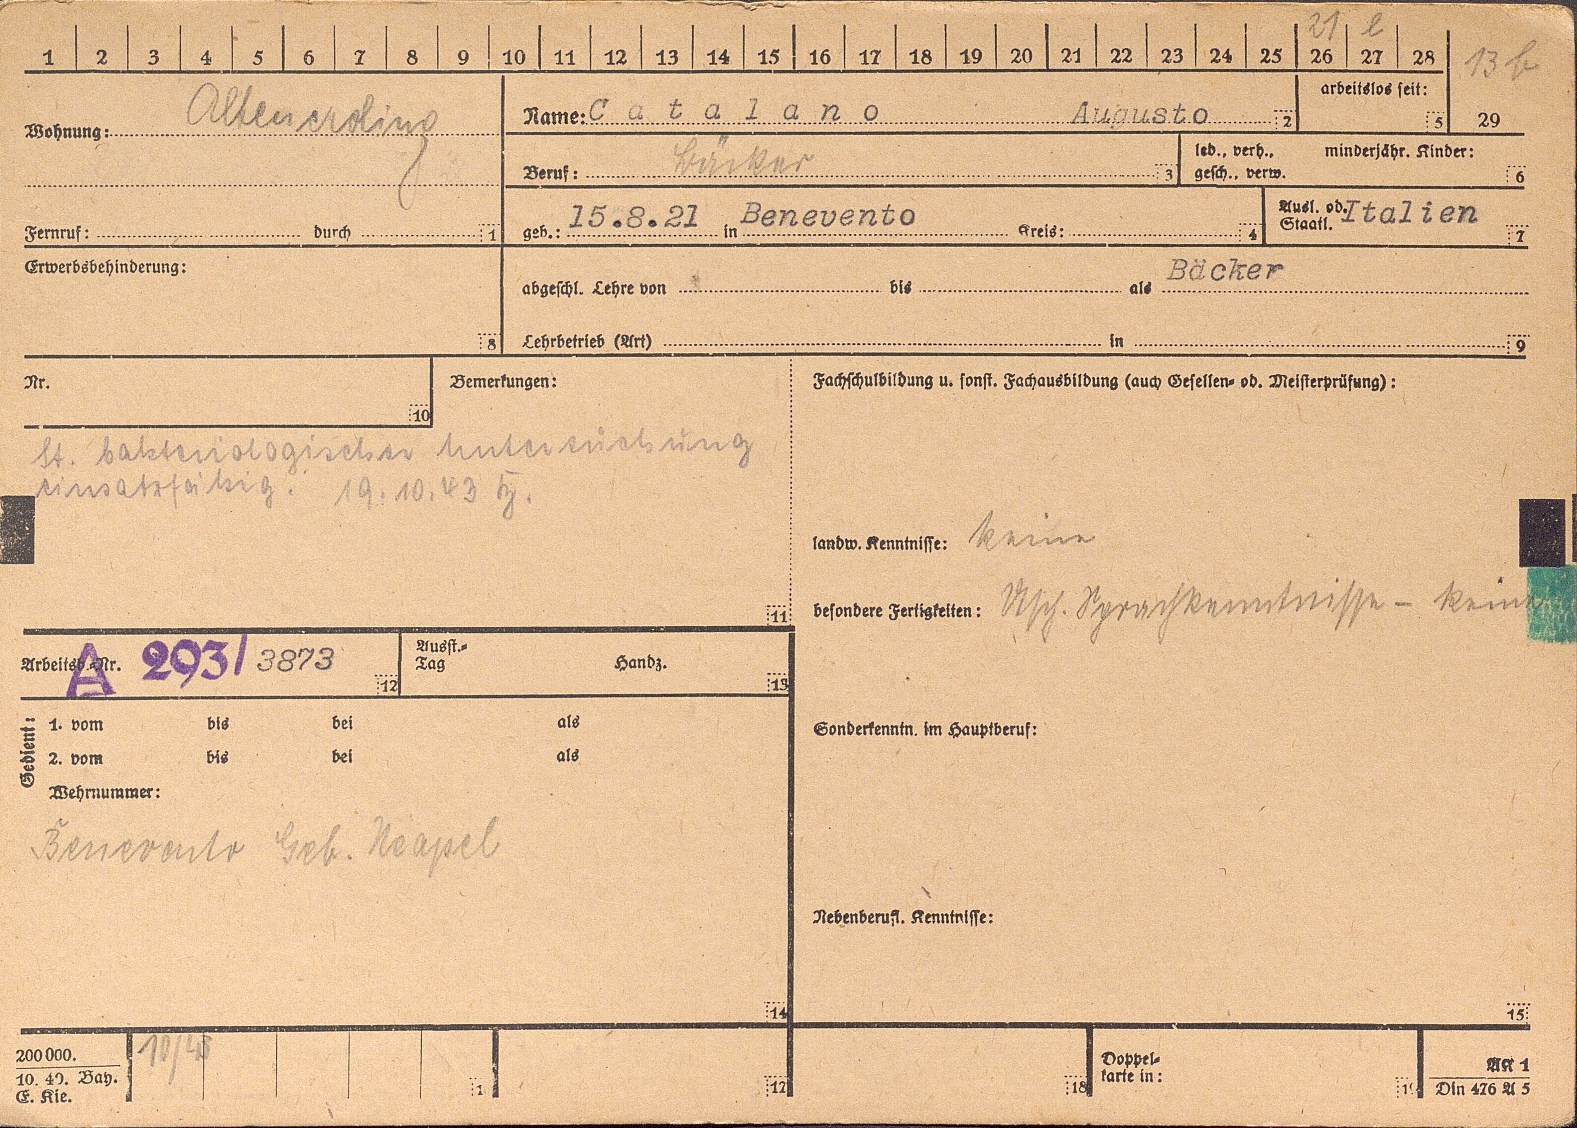 21 e
1 2 3 4 5 6 7 8 9 10 11 12 13 14 15 16 17 18 19 20 21 22 23 24 25 26 27 28
13 b
29
Wohnung: Altenerding
Name: Catalano Augusto 2
arbeitslos seit: 5
Beruf: Bäcker 3
led., verh., minderjähr. Kinder:
gesch., verw. 6
Fernruf: durch 1
geb.: 15.8.21 in Benevento Kreis: 4
Ausl. od. Italien
Staatl. 7
Erwerbsbehinderung: 8
abgeschl. Lehre von bis als Bäcker
Lehrbetrieb (Art) in 9
Nr. 10
Bemerkungen:
lt. bakteriologischer Untersuchung
einsatzfähig. 19.10.43
11
Fachschulbildung u. sonst. Fachausbildung (auch Gesellen- od. Meisterprüfung):
landw. Kenntnisse: keine
besondere Fertigkeiten: Sprachkenntnisse - keine
Arbeitsb.-Nr. A 293/3873 12
Ausst.-
Tag Handz. 13
Gedient:
1. vom bis bei als
2. vom bis bei als
Wehrnummer:
Benevento Geb. Neapel
14
Sonderkenntn. im Hauptberuf:
Nebenberufl. Kenntnisse:
15
200 000.
10. 40. Bay.
E. Kie.
10/43
17
18
Doppel-
karte in:
AK 1
Din 476 A 5